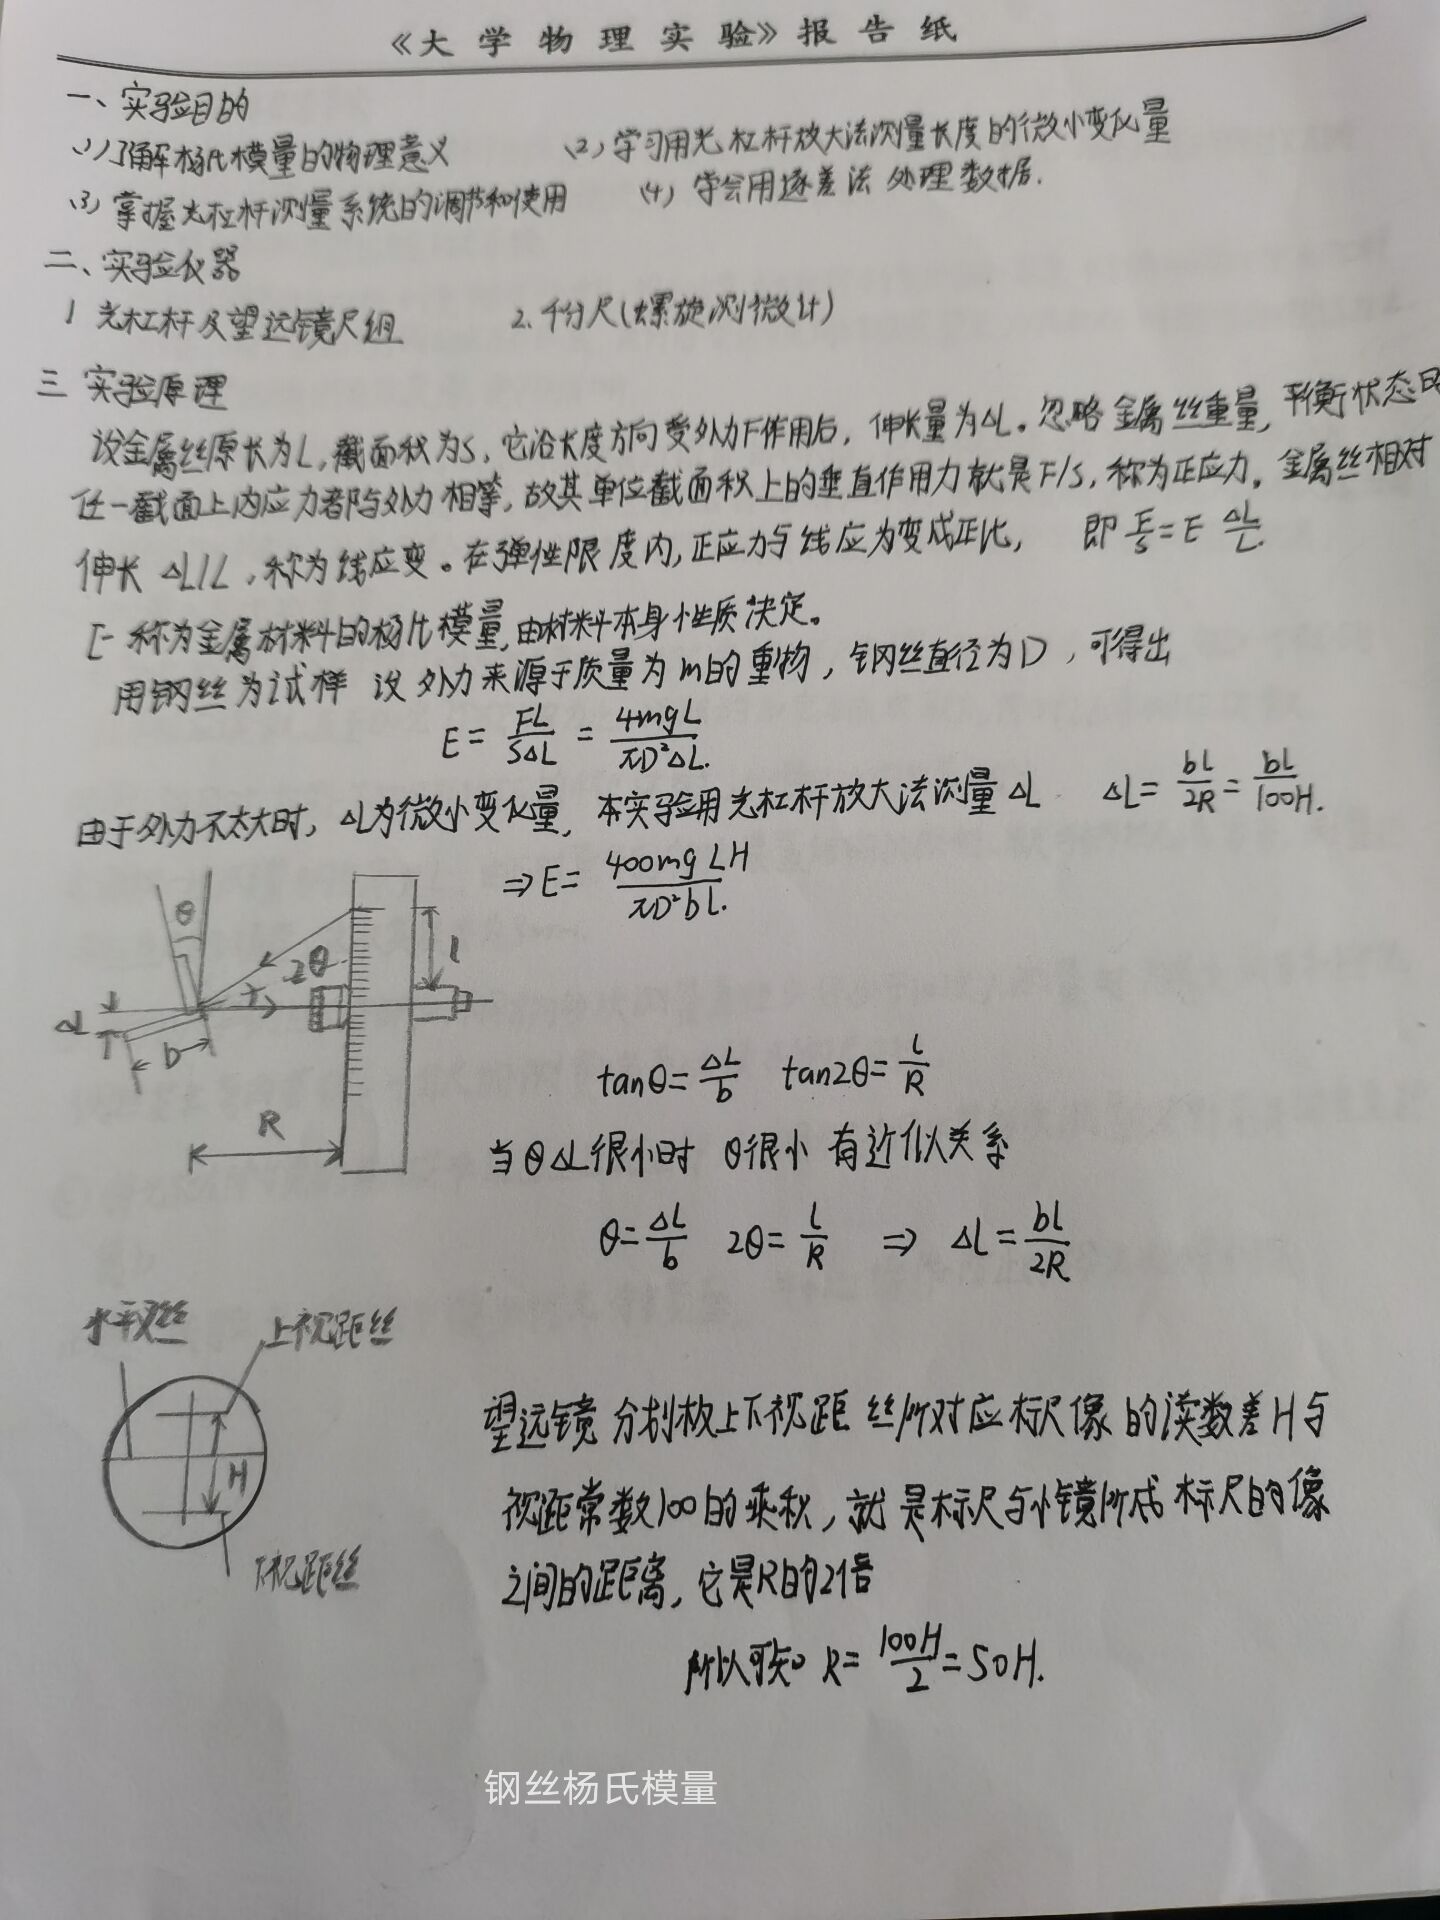 《大学物理实验》报告纸
一、实验目的
(1)了解杨氏模量的物理意义 (2)学习用光杠杆放大法测量长度的微小变化量
(3)掌握光杠杆测量系统的调节和使用 (4)学会用逐差法处理数据.
二、实验仪器
1 光杠杆及望远镜尺组 2.千分尺(螺旋测微计)
三 实验原理
设金属丝原长为L,截面积为S,它沿长度方向受外力F作用后,伸长量为△L。忽略金属丝重量,平衡状态时
任一截面上内应力都与外力相等,故其单位截面积上的垂直作用力就是F/S,称为正应力。金属丝相对
伸长 △L/L,称为线应变。在弹性限度内,正应力与线应为变成正比, 即 F/S = E △L/L.
E 称为金属材料的杨氏模量,由材料本身性质决定。
用钢丝为试样 设外力来源于质量为m的重物,钢丝直径为D,可得出
E = FL/S△L = 4mgL/πD²△L.
由于外力不太大时,△L为微小变化量,本实验用光杠杆放大法测量△L △L = bl/2R = bl/100H.
⇒E = 400mgLH/πD²bl.
θ
2θ
l
△L
b
R
tanθ = △L/b tan2θ = l/R
当θ△L很小时 θ很小 有近似关系
θ = △L/b 2θ = l/R ⇒ △L = bl/2R
水平叉丝 上视距丝
H
下视距丝
望远镜分划板上下视距丝所对应标尺像的读数差H与
视距常数100的乘积,就是标尺与小镜所成标尺的像
之间的距离,它是R的2倍
所以可知 R = 100H/2 = 50H.
钢丝杨氏模量